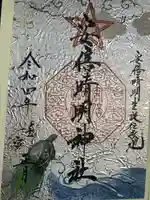 安倍晴明生誕伝承地
安倍晴明神社
令和四年